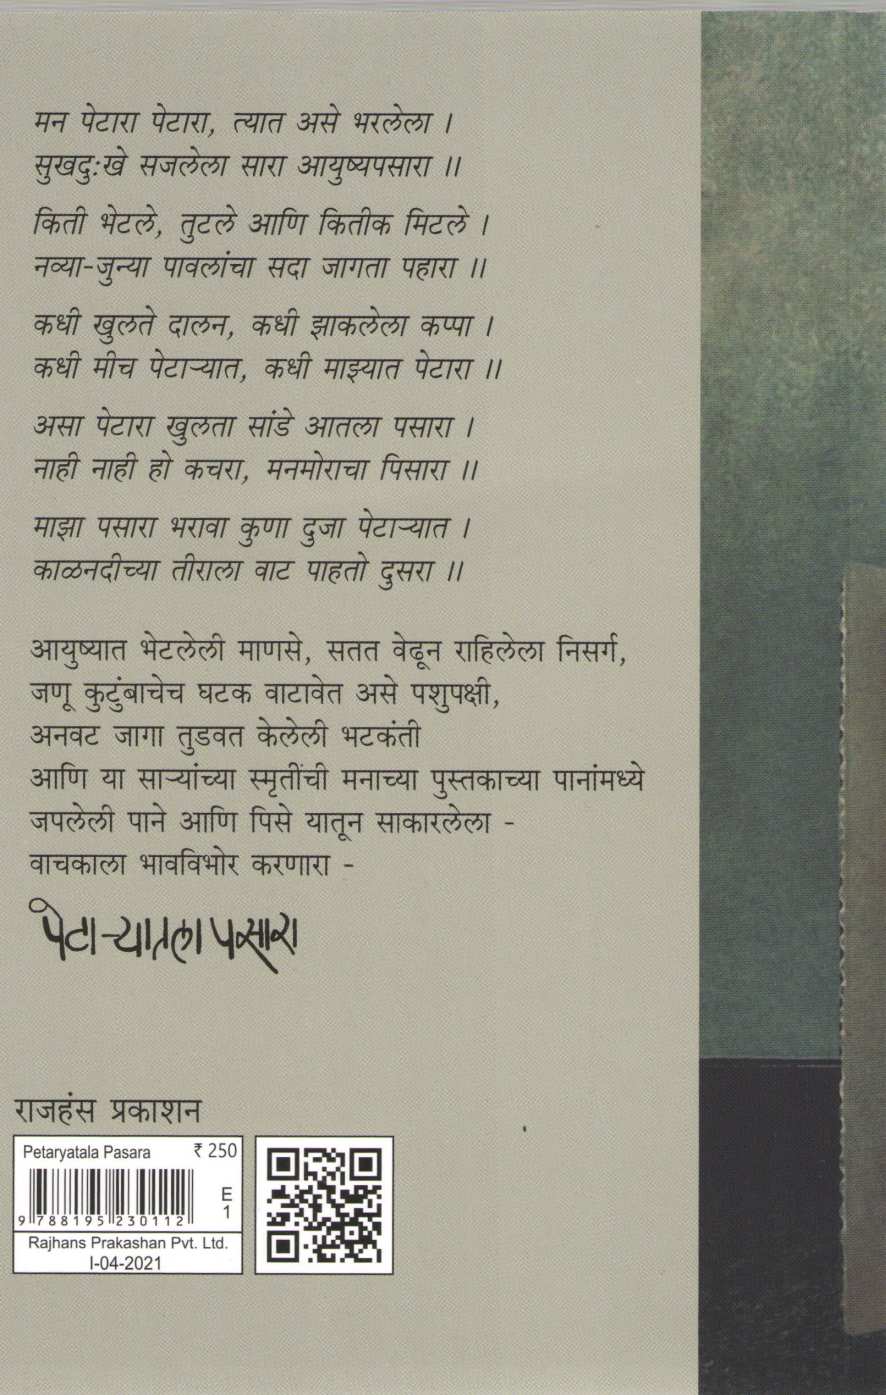 मन पेटारा पेटारा, त्यात असे भरलेला ।
सुखदुःखे सजलेला सारा आयुष्यपसारा ।।
किती भेटले, तुटले आणि कितीक मिटले ।
नव्या-जुन्या पावलांचा सदा जागता पहारा ।।
कधी खुलते दालन, कधी झाकलेला कप्पा ।
कधी मीच पेटाऱ्यात, कधी माझ्यात पेटारा ।।
असा पेटारा खुलता सांडे आतला पसारा ।
नाही नाही हो कचरा, मनमोराचा पिसारा ।।
माझा पसारा भरावा कुणा दुजा पेटाऱ्यात ।
काळनदीच्या तीराला वाट पाहतो दुसरा ।।
आयुष्यात भेटलेली माणसे, सतत वेढून राहिलेला निसर्ग,
जणू कुटुंबाचेच घटक वाटावेत असे पशुपक्षी,
अनवट जागा तुडवत केलेली भटकंती
आणि या साऱ्यांच्या स्मृतींची मनाच्या पुस्तकाच्या पानांमध्ये
जपलेली पाने आणि पिसे यातून साकारलेला -
वाचकाला भावविभोर करणारा -
पेटाऱ्यातला पसारा
राजहंस प्रकाशन
Petaryatala Pasara ₹ 250
E
1
9 788195 230112
Rajhans Prakashan Pvt. Ltd.
I-04-2021